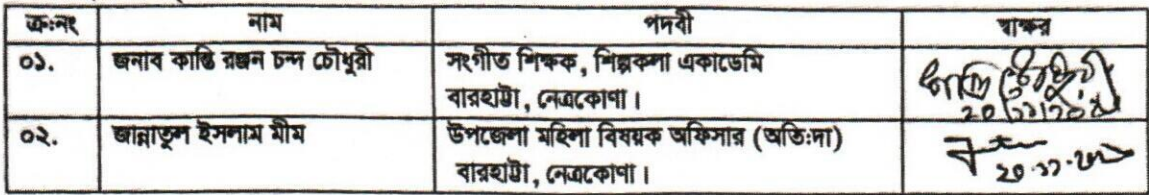 ক্র:নং নাম পদবী স্বাক্ষর
০১. জনাব কান্তি রঞ্জন চন্দ চৌধুরী সংগীত শিক্ষক, শিল্পকলা একাডেমি
বারহাট্টা, নেত্রকোণা।
০২. জান্নাতুল ইসলাম মীম উপজেলা মহিলা বিষয়ক অফিসার (অতি:দা)
বারহাট্টা, নেত্রকোণা।